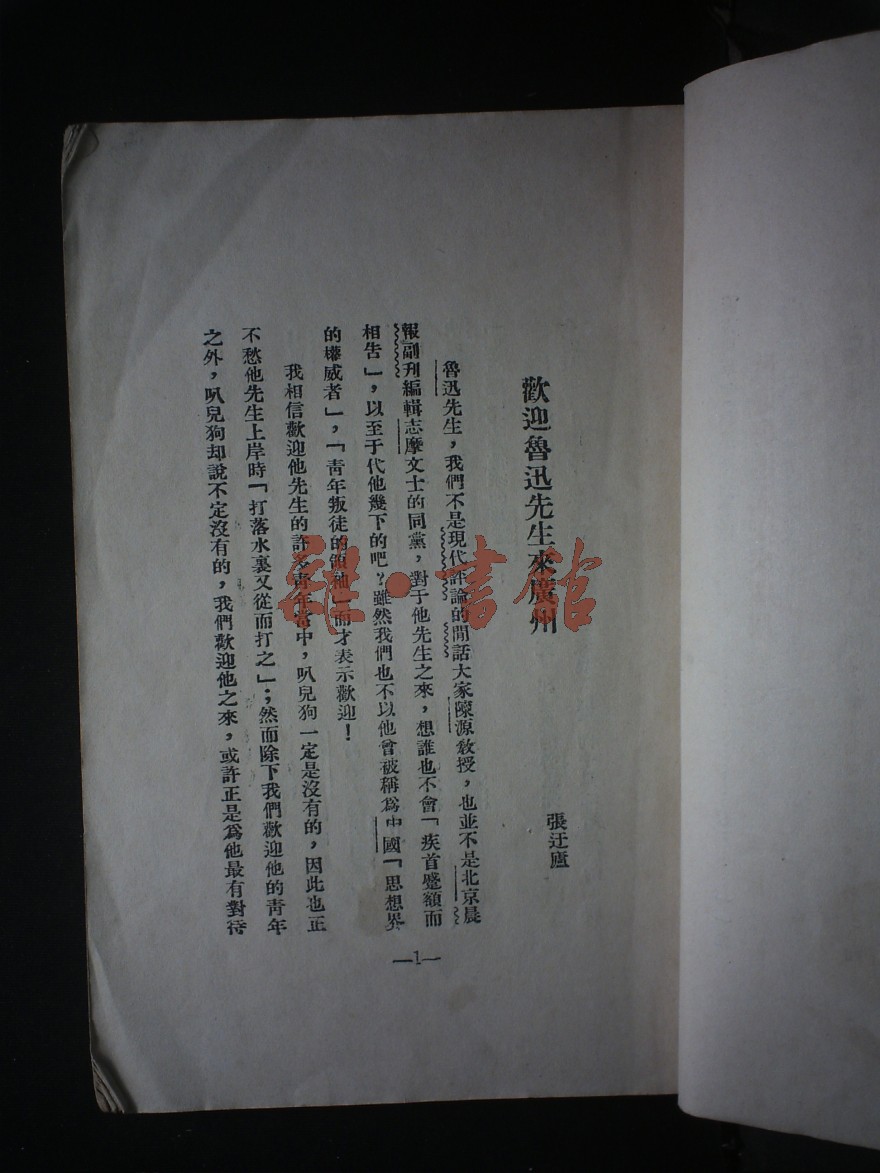 歡迎魯迅先生來廣州
張迂廬
魯迅先生,我們不是現代評論的閒話大家陳源敎授,也並不是北京晨
報副刊編輯志摩文士的同黨,對于他先生之來,想誰也不會「疾首蹙額而
相告」,以至于代他幾下的吧?雖然我們也不以他曾被稱爲中國「思想界
的權威者」,「靑年叛徒的領袖」而才表示歡迎!
我相信歡迎他先生的許多靑年當中,叭兒狗一定是沒有的,因此也正
不愁他先生上岸時「打落水裏又從而打之」;然而除下我們歡迎他的靑年
之外,叭兒狗却說不定沒有的,我們歡迎他之來,或許正是爲他最有對待
—1—
雜·書館